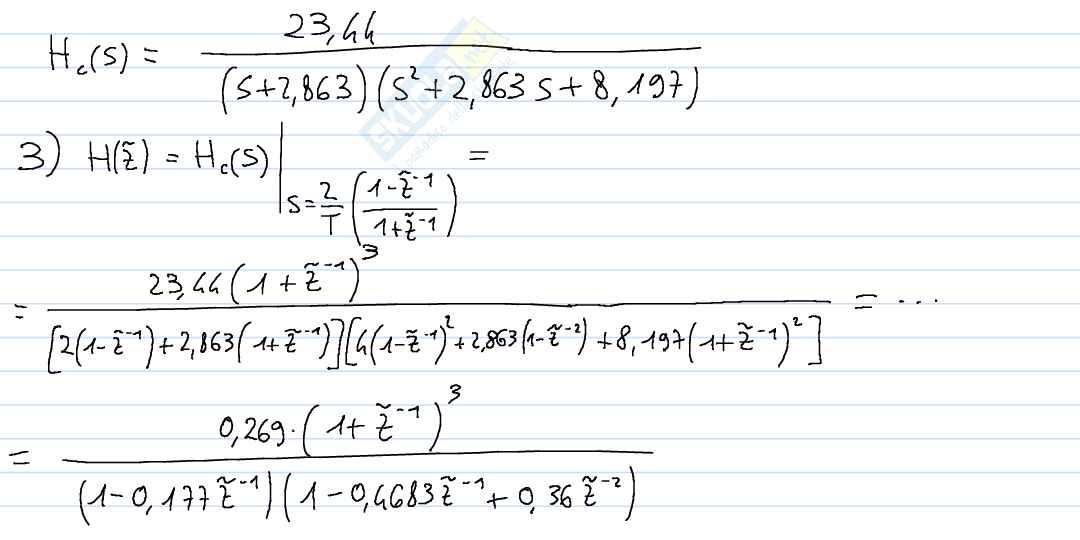 H_c(s) = 23,44 / (s+2,863)(s²+2,863 s+8,197)
3) H(z̃) = H_c(s) |_{s = 2/T ((1-z̃⁻¹)/(1+z̃⁻¹))} =
= 23,44(1+z̃⁻¹)³ / [2(1-z̃⁻¹)+2,863(1+z̃⁻¹)][4(1-z̃⁻¹)²+2,863(1-z̃⁻²)+8,197(1+z̃⁻¹)²] = ...
= 0,269·(1+z̃⁻¹)³ / (1-0,177z̃⁻¹)(1-0,4683z̃⁻¹+0,36z̃⁻²)